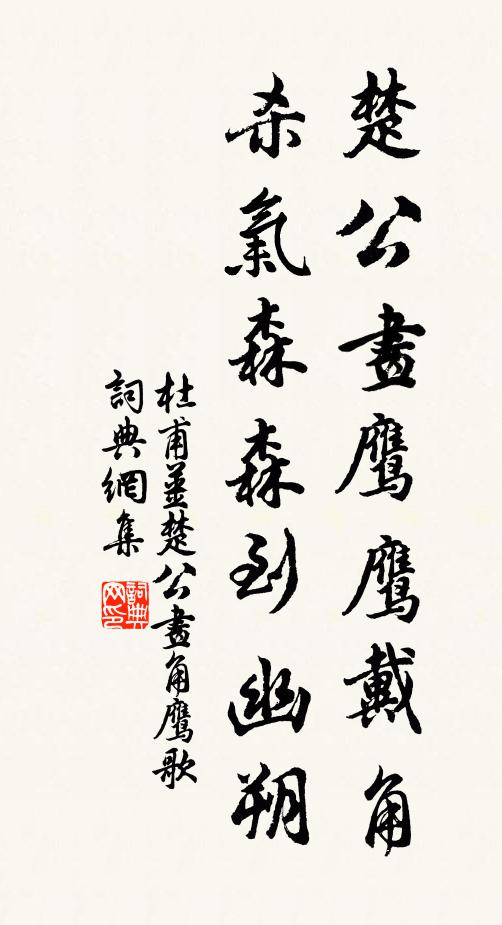 楚公畫鷹鷹戴角
杀氣森森到幽朔
杜甫姜楚公畫角鷹歌
詞典網集
詞典网印